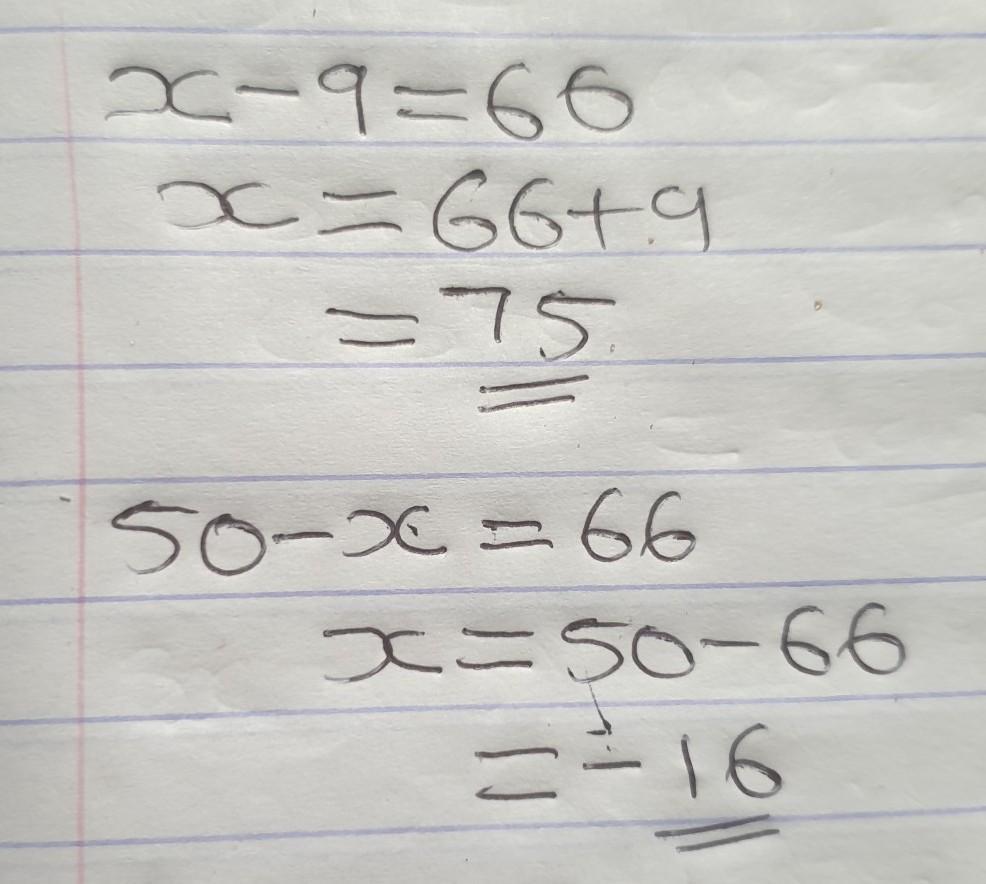 x - 9 = 66
x = 66 + 9
= 75
50 - x = 66
x = 50 - 66
= - 16